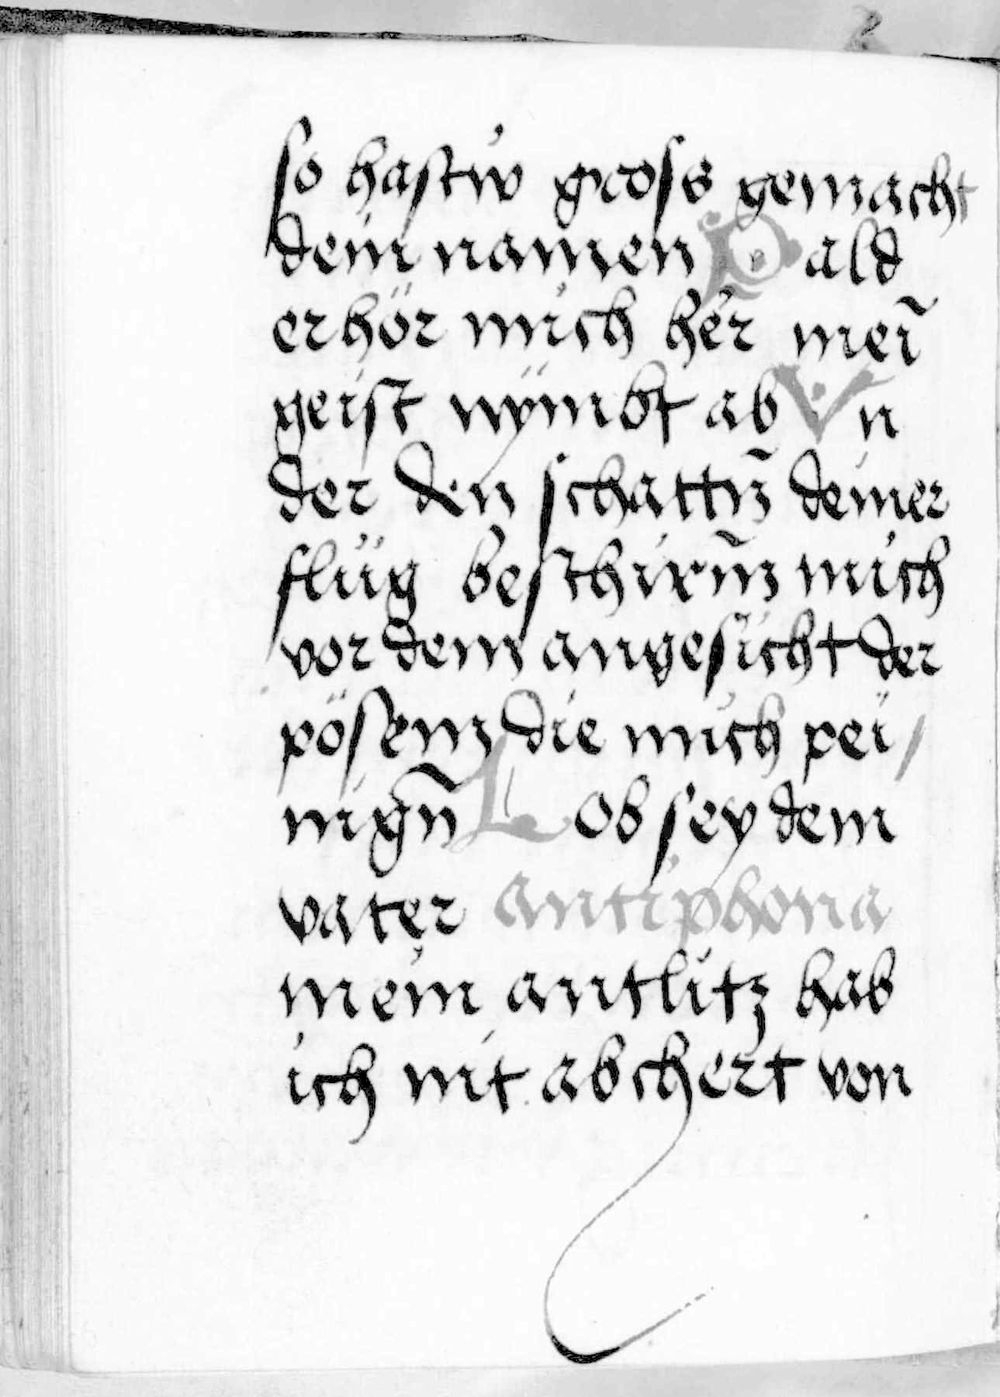 so hastw gross gemacht
dein namen Pald
erhör mich her mein̄
geist nÿmbt ab Vn
der den schattn̄ deiner
flüg beschirm̄ mich
vor dem angesicht der
pösenn die mich pei/
nign̄ Lob sey dem
vater antiphona
mein antlitz hab
ich nit abchert von